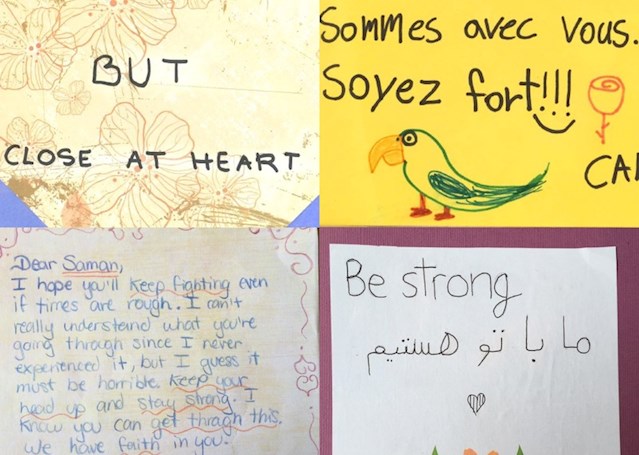 BUT
CLOSE AT HEART
Sommes avec vous.
Soyez fort!!!
CAN
Dear Saman,
I hope you'll keep fighting even
if times are rough. I can't
really understand what you're
going through since I never
experienced it, but I guess it
must be horrible. Keep your
head up and stay strong. I
know you can get through this.
We have faith in you.
Be strong
ما با تو هستیم